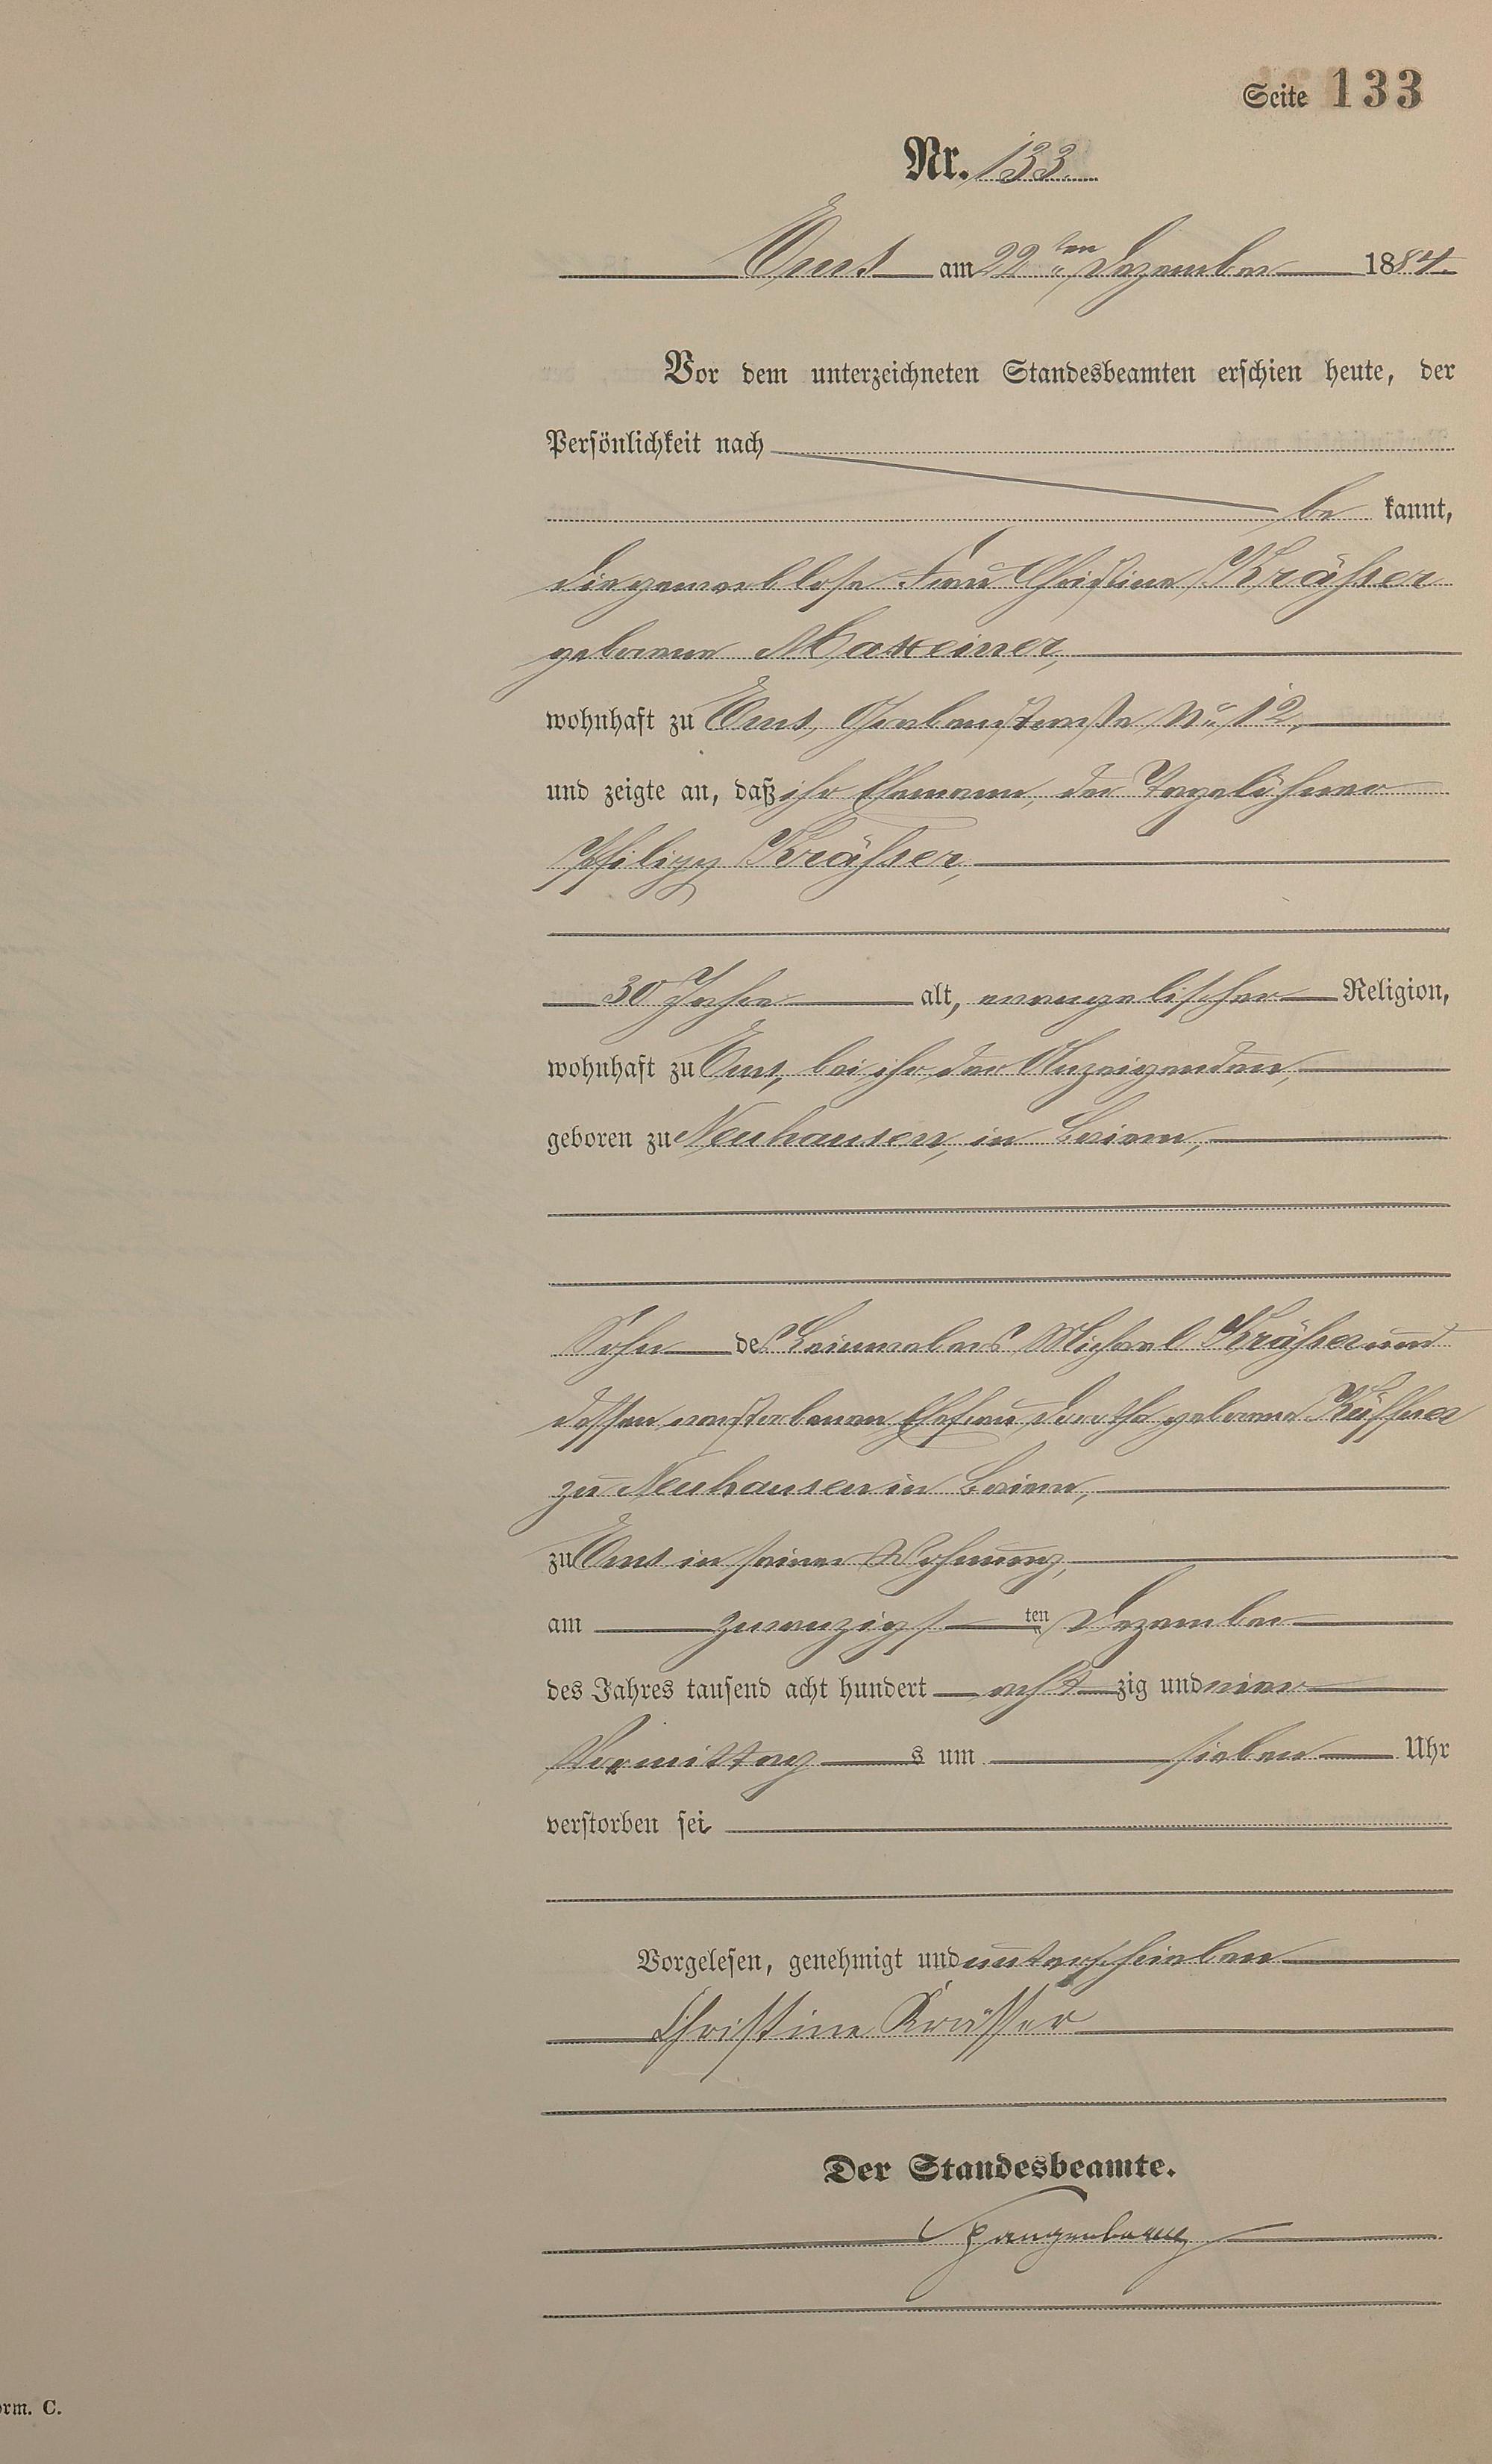 Seite 133
Nr. 133.
Ems am 22ten Dezember 1884.
Vor dem unterzeichneten Standesbeamten erschien heute, der
Persönlichkeit nach
be kannt,
die gewerblose Frau Christine Kräßer
geborene Matteiner,
wohnhaft zu Ems, Grabenstraße No 12,
und zeigte an, daß ihr Ehemann, der Tagelöhner
Philipp Kräßer,
30 Jahre alt, evangelischer Religion,
wohnhaft zu Ems, bei ihr der Anzeigenden,
geboren zu Neuhausen, in Baiern,
Sohn des Leinwebers Michael Kräßer und
dessen verstorbenen Ehefrau, geborene Küffner
zu Neuhausen in Baiern,
zu Ems in seiner Wohnung,
am zwanzigsten Dezember
des Jahres tausend acht hundert achtzig und vier
Vormittags um sieben Uhr
verstorben sei
Vorgelesen, genehmigt und unterschrieben
Christine Krässer
Der Standesbeamte.
Spangenberg
orm. C.